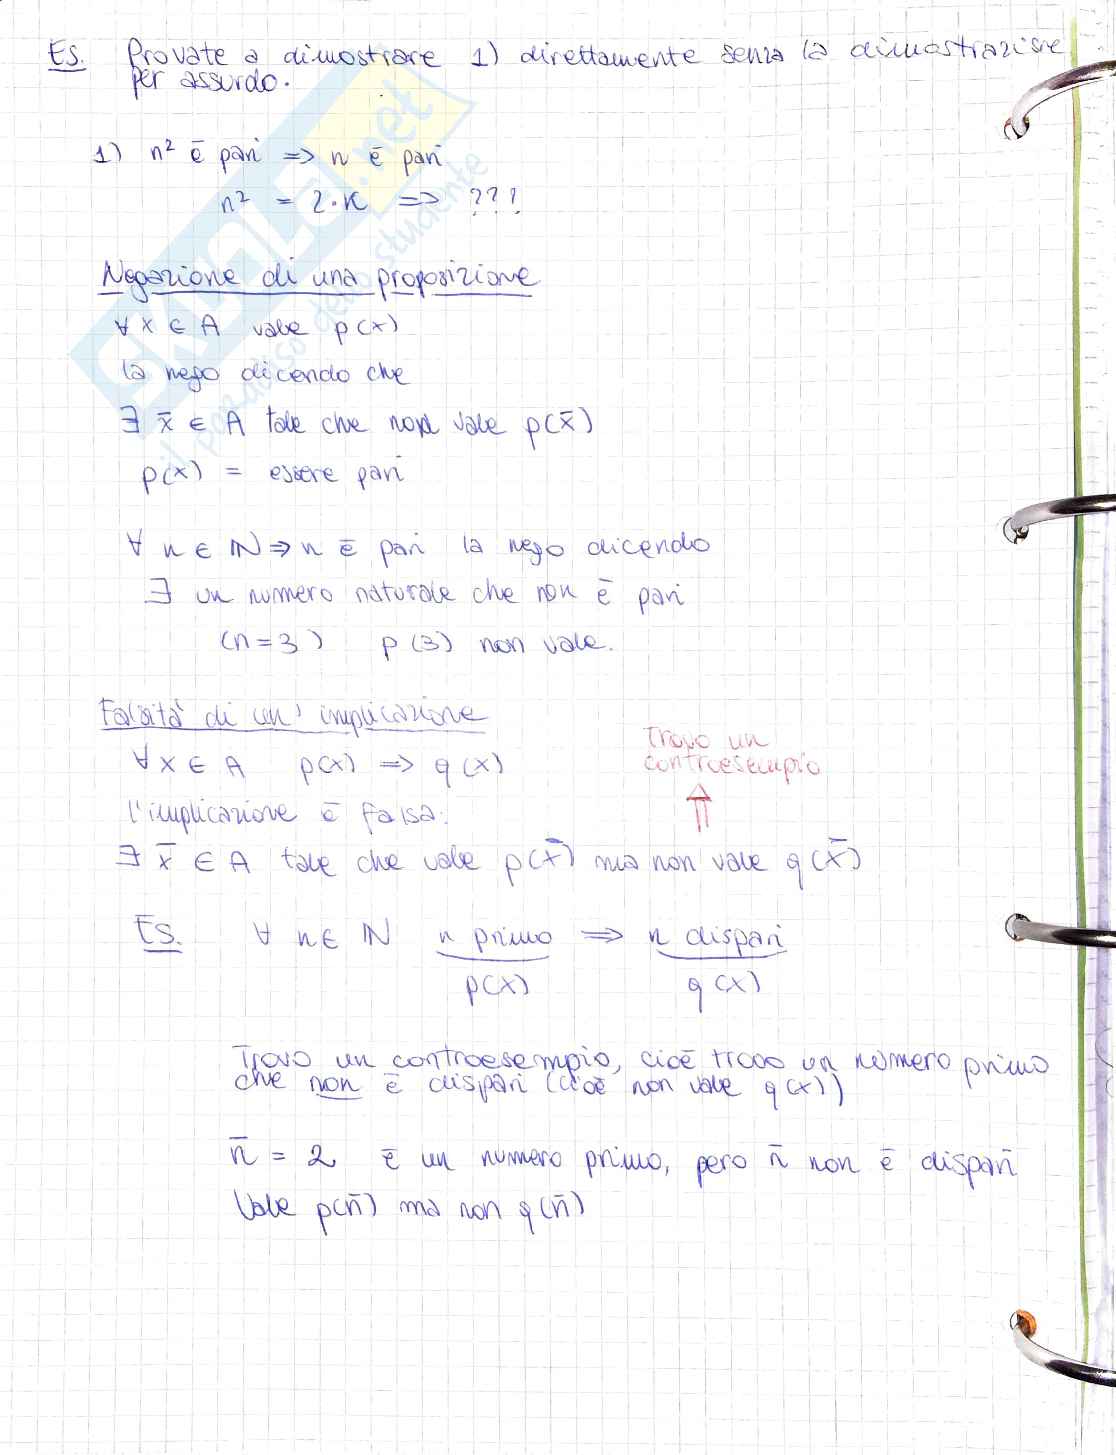 Es. Provate a dimostrare 1) direttamente senza la dimostrazione
per assurdo.
1) n² è pari ⇒ n è pari
n² = 2·K ⇒ ???
Negazione di una proposizione
∀ x ∈ A vale p(x)
la nego dicendo che
∃ x̄ ∈ A tale che non vale p(x̄)
p(x) = essere pari
∀ n ∈ ℕ ⇒ n è pari la nego dicendo
∃ un numero naturale che non è pari
(n=3) p(3) non vale.
Falsità di un' implicazione
∀ x ∈ A p(x) ⇒ q(x)
Trovo un
controesempio
l'implicazione è falsa:
∃ x̄ ∈ A tale che vale p(x̄) ma non vale q(x̄)
Es. ∀ n ∈ ℕ n primo ⇒ n dispari
p(x) q(x)
Trovo un controesempio, cioè trovo un numero primo
che non è dispari (cioè non vale q(x))
n̄ = 2 è un numero primo, però n̄ non è dispari
Vale p(n̄) ma non q(n̄)
SKUOLA.net
il paradiso dello studente